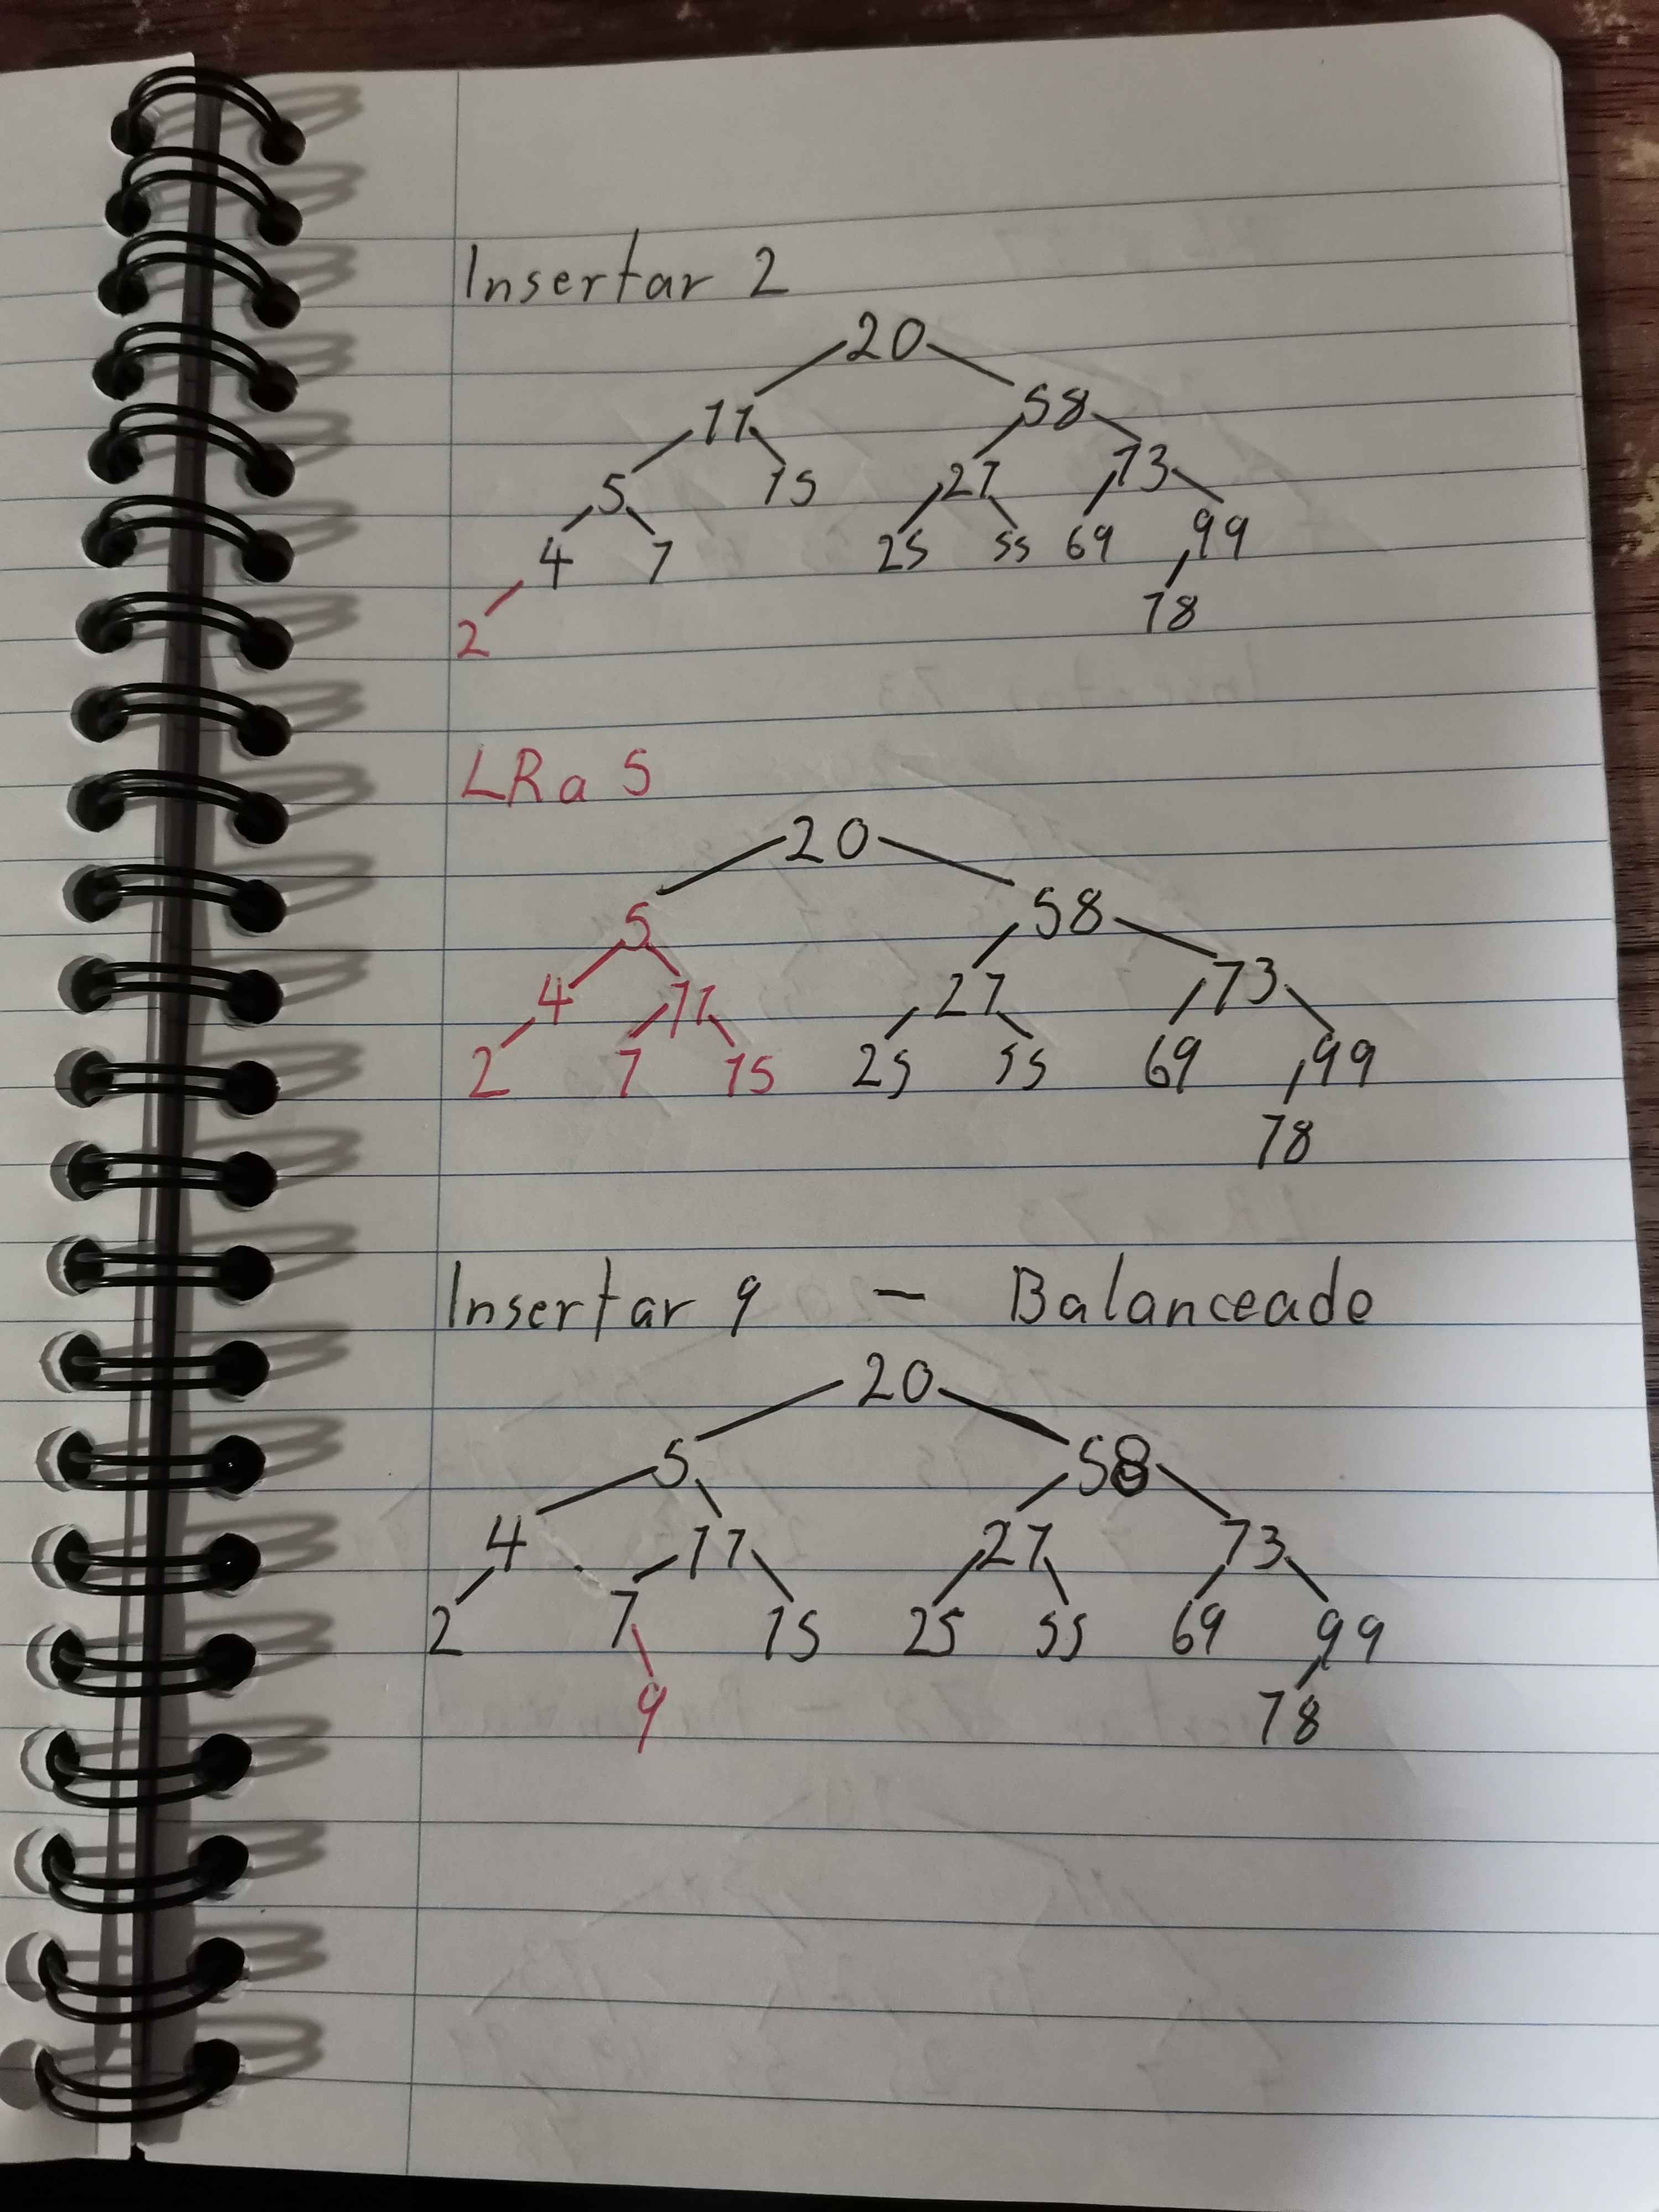 Insertar 2
20
11 58
5 15 27 73
4 7 25 55 69 99
2 78
LR a 5
20
5 58
4 11 27 73
2 7 15 25 55 69 99
78
Insertar 9 - Balanceado
20
5 58
4 11 27 73
2 7 15 25 55 69 99
9 78